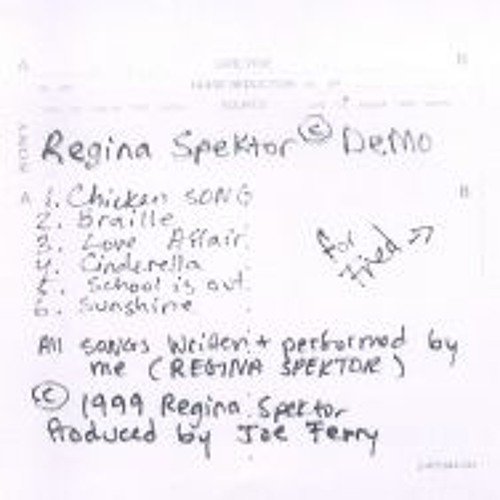 A B
Regina Spektor © Demo
A B
1. Chicken SONG
2. Braille
3. Love Affair
4. Cinderella
5. School is out
6. Sunshine
for
Fred →
All songs written + performed by
me (REGINA SPEKTOR)
© 1999 Regina Spektor
Produced by Joe Ferry
SONY